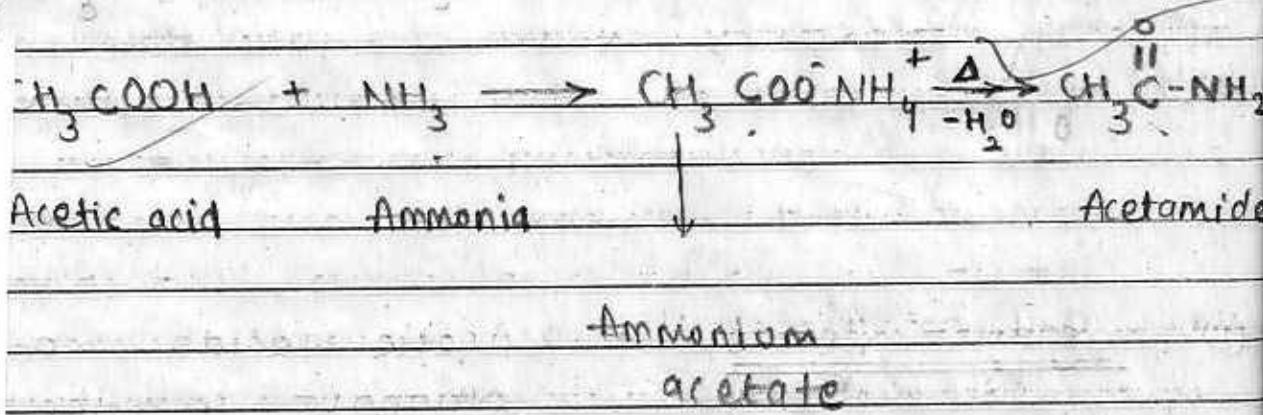 O
H₃COOH + NH₃ ⟶ CH₃COO⁻NH₄⁺ Δ -H₂O ⟶ CH₃C-NH₂
Acetic acid Ammonia Acetamide
Ammonium
acetate